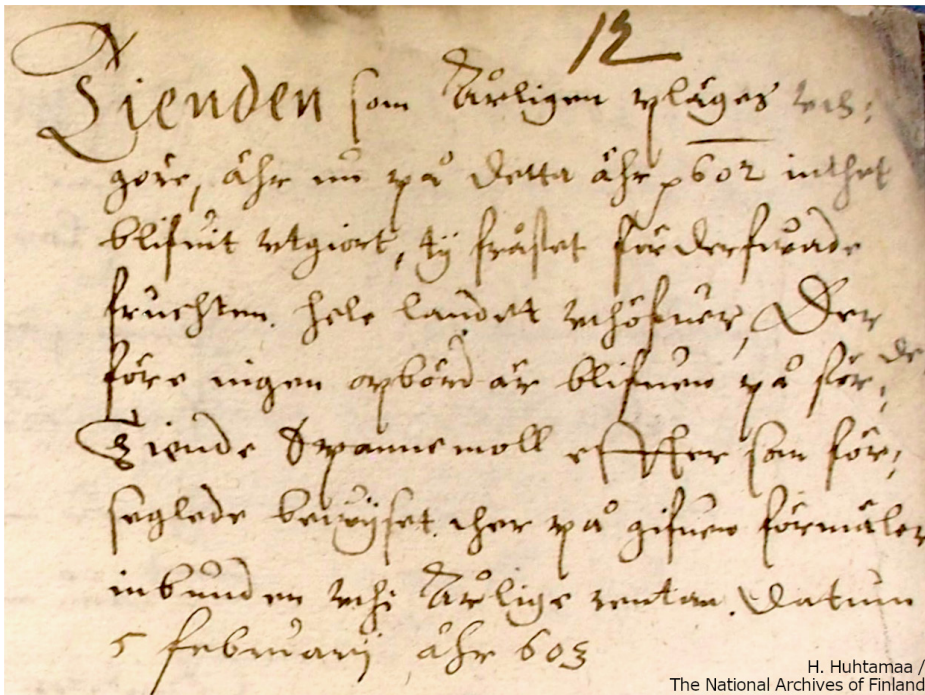 12
Tienden som Åhrligen pläges vth:
göre, ähr nu på detta åhr 602 inthet
blifuit vtgiort, ty fråstet förderfwade
fruchten hele landet vthöfuer, Der
före ingen opbörd är blifuen på för: de
Tiende Spannemoll effther som för:
seglede bewijset ther på gifuen förmäler
inbunden vthi Åhrlige rentan. Datum
5 februarij åhr 603
H. Huhtamaa /
The National Archives of Finland